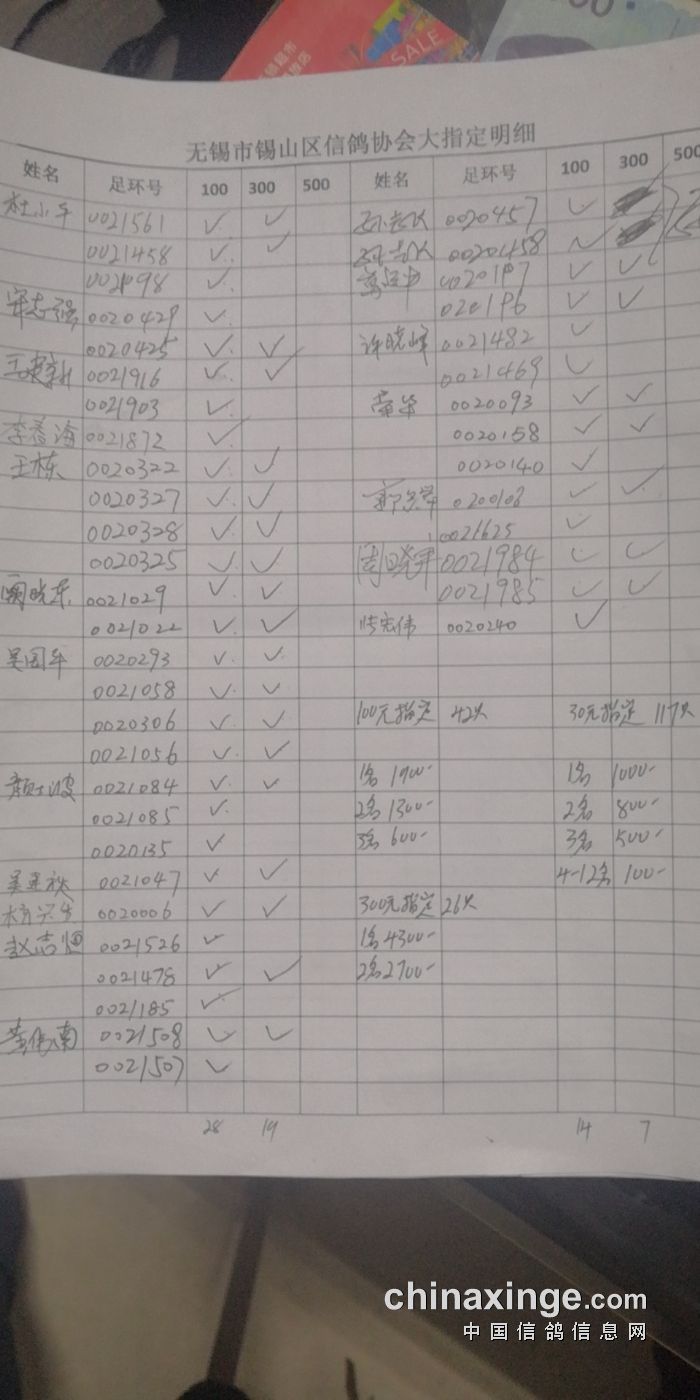 SALE
无锡市锡山区信鸽协会大指定明细
姓名 足环号 100 300 500 姓名 足环号 100 300 500
0021561 ✓ ✓ 0020457 ✓
0021458 ✓ ✓ 00201458 ✓
✓ 0020197 ✓ ✓
宋志强 0020429 ✓ 020196 ✓ ✓
0020425 ✓ ✓ 许晓峰 0021482 ✓
王建新 0021916 ✓ ✓ 0021469 ✓
0021903 ✓ 0020093 ✓ ✓
李春海 0021872 ✓ 0020158 ✓ ✓
王栋 0020322 ✓ ✓ 0020140 ✓
0020327 ✓ ✓ ✓ ✓
0020328 ✓ ✓ 0021625 ✓
0020325 ✓ ✓ 0021984 ✓ ✓
0021029 ✓ ✓ 0021985 ✓ ✓
0021022 ✓ ✓ 0020240 ✓
吴国平 0020293 ✓ ✓
0021058 ✓ ✓
0020306 ✓ ✓ 100元指定 42只 30元指定 117只
0021056 ✓ ✓
0021084 ✓ ✓ 1名 1900- 1名 1000-
0021085 ✓ 2名 1300- 2名 800-
0020135 ✓ 3名 600- 3名 500-
0021047 ✓ ✓ 4-12名 100-
0020006 ✓ ✓ 300元指定 26只
赵志恒 0021526 ✓ 1名 4300-
0021478 ✓ ✓ 2名 2700-
0021185 ✓
0021508 ✓ ✓
0021507 ✓
28 19 14 7
chinaxinge.com
中国信鸽信息网